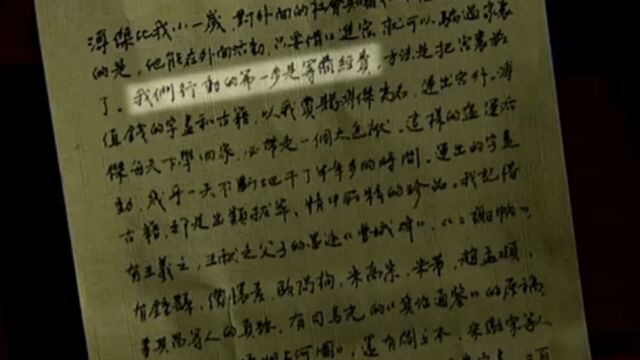 溥傑比我小一歲，對外面的社會知
的是，他能在外面活動，只要借口進宮，就可以騙過家裏
了。我們行動的第一步是籌備經費，方法是把宮裏最
值錢的字畫和古籍，以我賞賜溥傑爲名，運出宮外，溥
傑每天下學回家，必帶走一個大包袱。這樣的盜運活
動，幾乎一天不斷地干了半年多的時間。運出的字畫
古籍，都是出類拔萃、精中取精的珍品。我記得
有王羲之、王獻之父子的墨迹《曹娥碑》、《二謝帖》，
有鍾繇、懷素、歐陽詢、宋高宗、米芾、趙孟頫、
董其昌等人的真迹，有司馬光的《資治通鑒》的原稿，
上河圖》，還有閻立本、宋徽宗等人